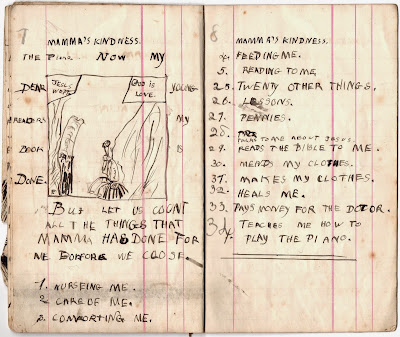 7
MAMMA'S KINDNESS.
THE NOW MY
DEAR JESUS WEPT GOD IS LOVE. YOUNG
READERS MY
BOOK IS
DONE.
BUT LET US COUNT
ALL THE THINGS THAT
MAMMA HAD DONE FOR
ME BOEFORE WE CLOSE.
1. NURSEING ME.
2 CAREDE ME.
3. COMFORTING ME.
8
MAMMA'S KINDNESS.
4. FEEDING ME.
5. READING TO ME
25. TWENTY OTHER THINGS.
26. LESSONS.
27. PENNIES.
28. TALKS TO ME ABOUT JESUS.
29. READS THE BIBLE TO ME.
30. MENDS MY CLOTHES.
31. MAKES MY CLOTHES.
32. HEALS ME.
33. PAYS MONEY FOR THE DCTOR.
34. TEACHES ME HOW TO
PLAY THE PIANO.